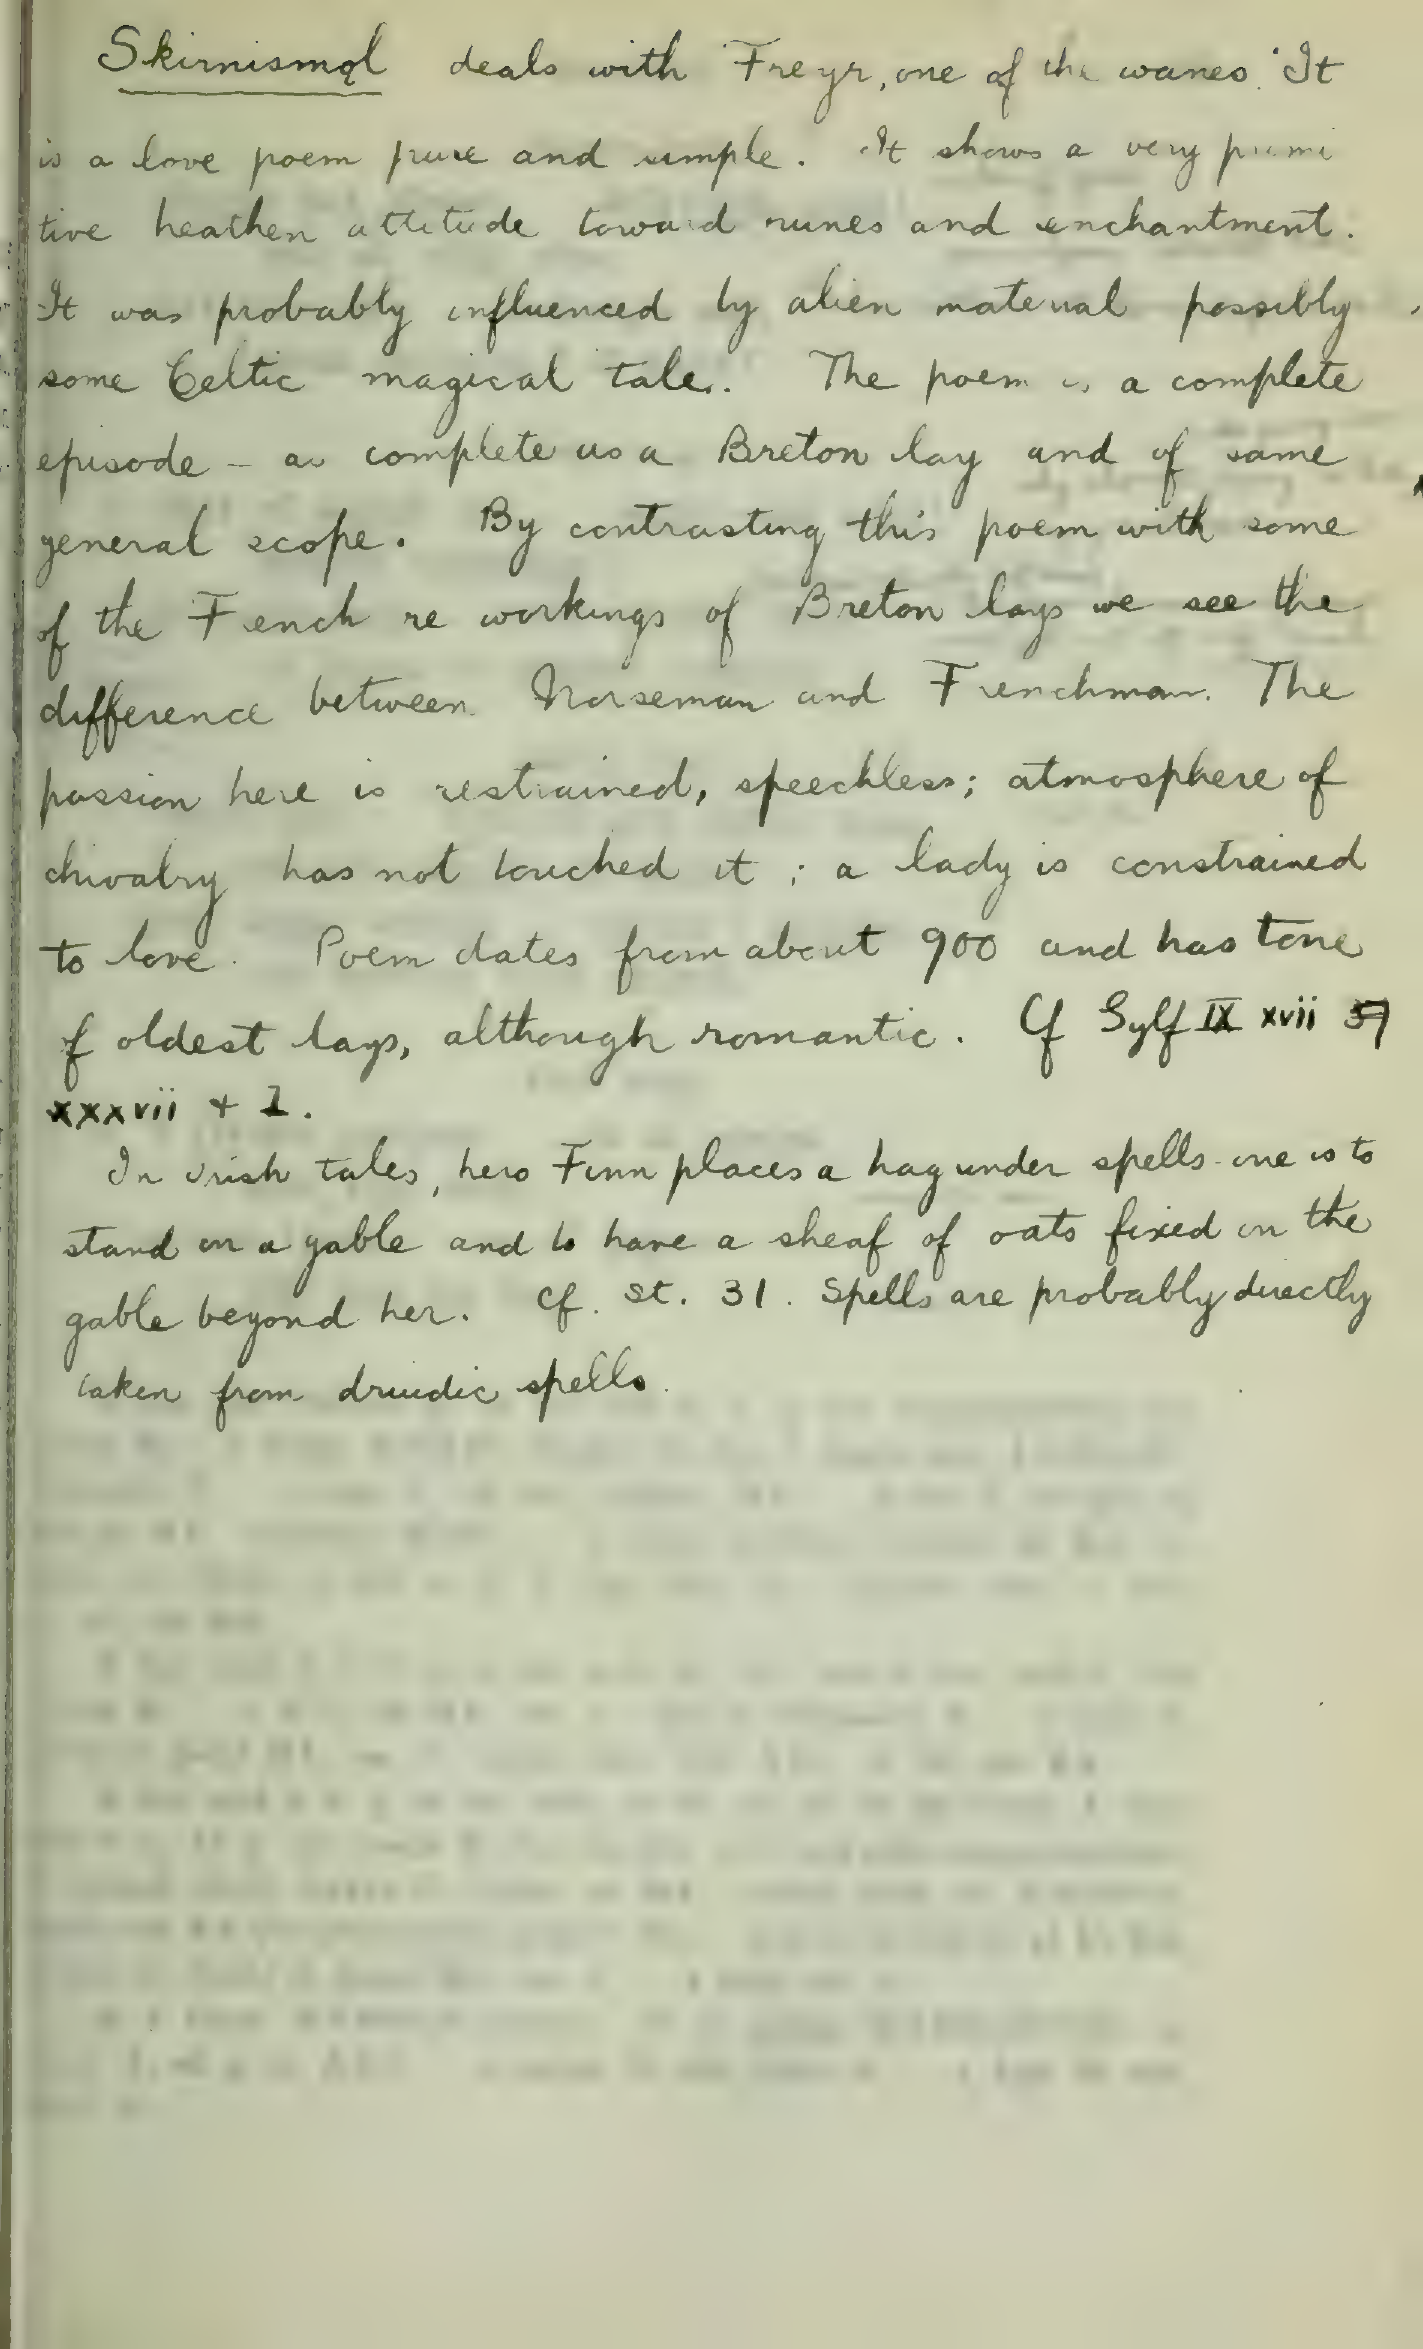 Skirnismǫl deals with Freyr, one of the wanes. It
is a love poem pure and simple. It shows a very primi
tive heathen attitude toward runes and enchantment.
It was probably influenced by alien material possibly
some Celtic magical tale. The poem is a complete
episode – as complete as a Breton lay and of same
general scope. By contrasting this poem with some
of the French re workings of Breton lays we see the
difference between Norseman and Frenchman. The
passion here is restrained, speechless; atmosphere of
chivalry has not touched it; a lady is constrained
to love. Poem dates from about 900 and has tone
of oldest lays, although romantic. Cf Gylf IX xvii
xxxvii + 1.
In Irish tales, hero Finn places a hag under spells - one is to
stand on a gable and to have a sheaf of oats fixed on the
gable beyond her. Cf. St. 31. Spells are probably directly
taken from druidic spells.